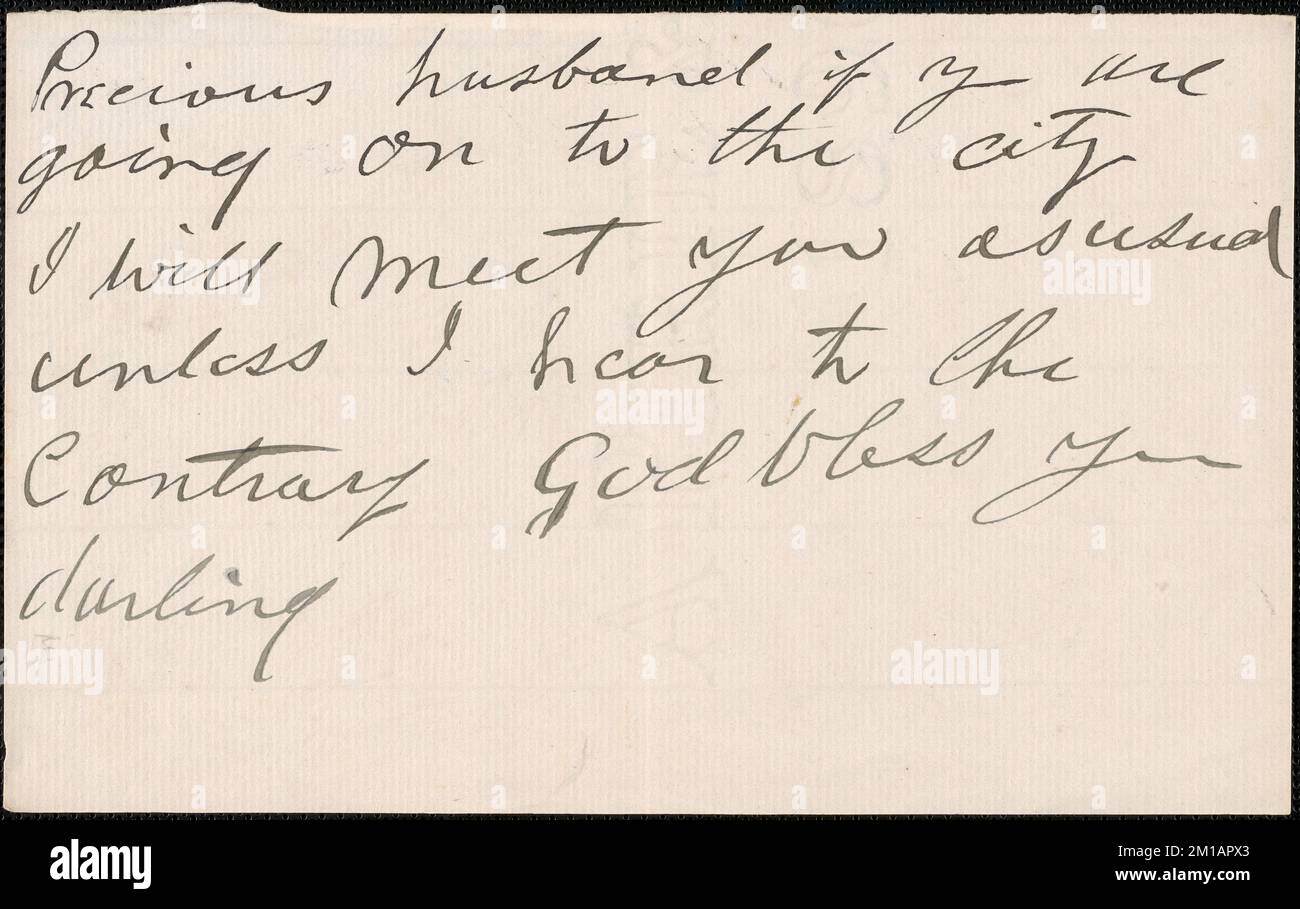 Precious husband if y are
going on to the city
I will meet you as usual
unless I hear to the
Contrary God bless you
darling
alamy
Image ID: 2M1APX3
www.alamy.com